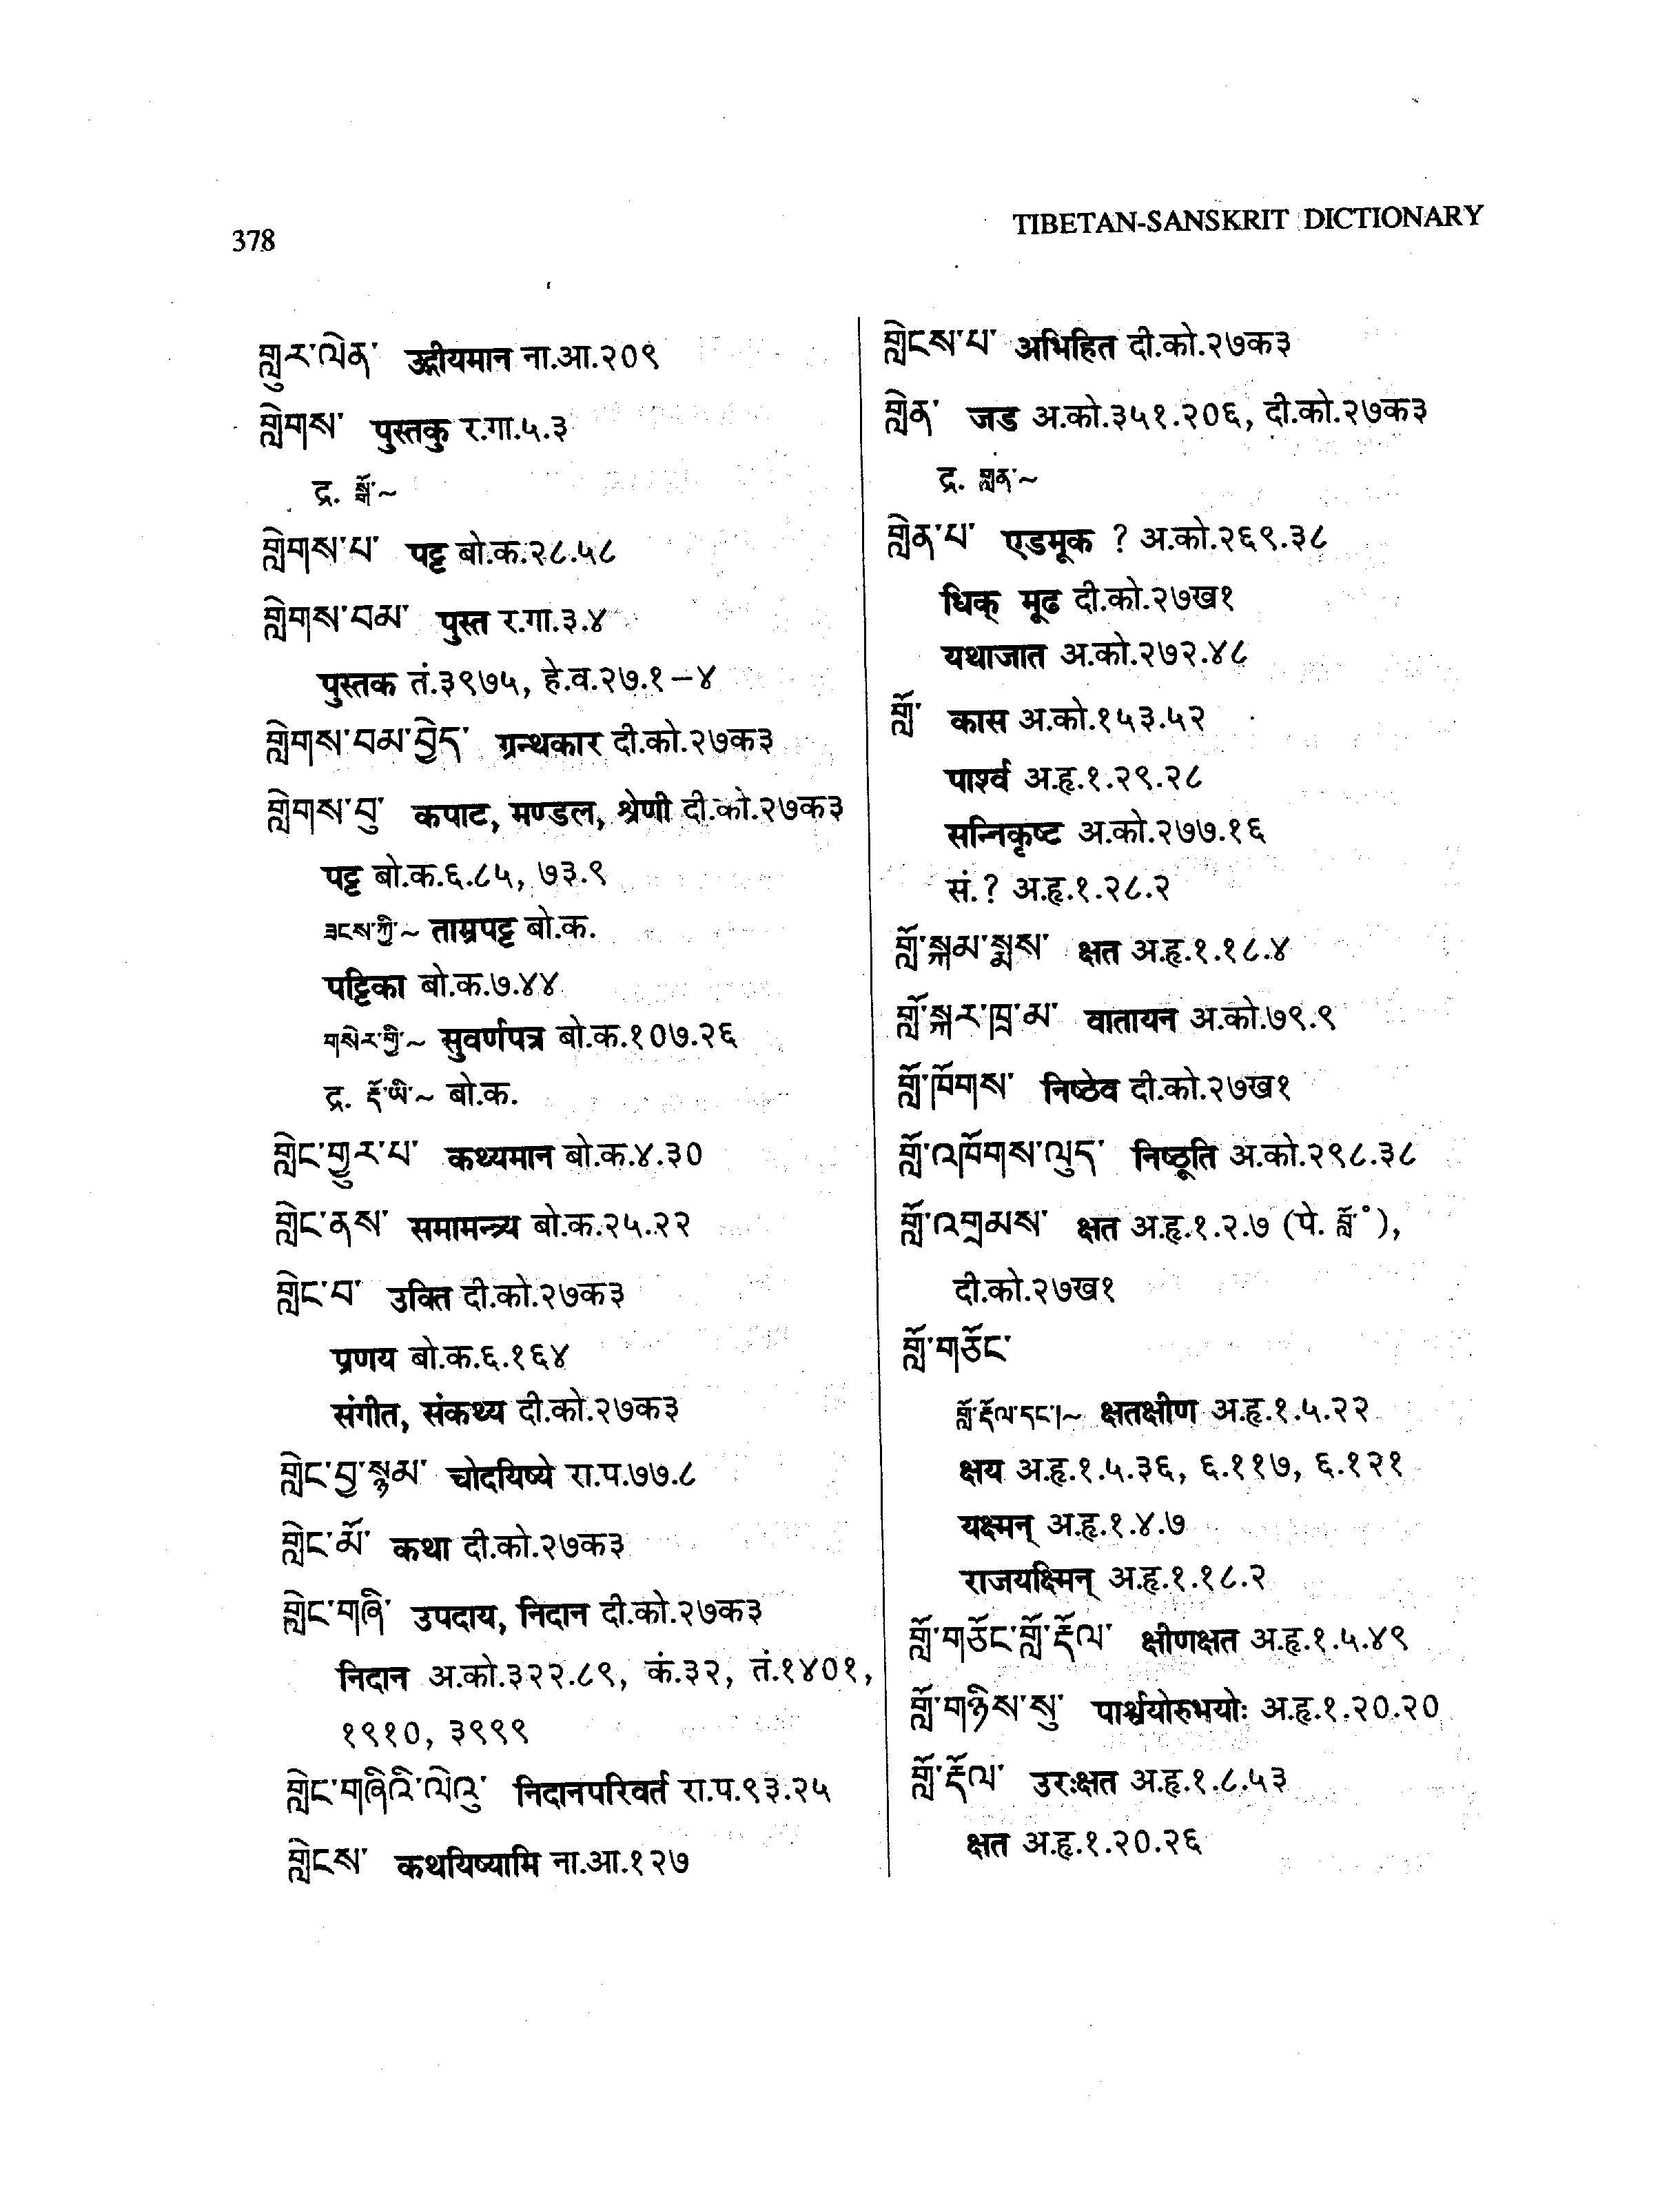 378
TIBETAN-SANSKRIT DICTIONARY
གླུར་ལེན་ उद्गीयमान ना.आ.२०९
གླེགས་ पुस्तकु र.गा.५.३
द्र. གླ~
གླེགས་པ་ पट्ट बो.क.२८.५८
གླེགས་བམ་ पुस्त र.गा.३.४
पुस्तक तं.३९७५, हे.व.२७.१–४
གླེགས་བམ་བྱེད་ ग्रन्थकार दी.को.२७क३
གླེགས་བུ་ कपाट, मण्डल, श्रेणी दी.को.२७क३
पट्ट बो.क.६.८५, ७३.९
ཟངས་ཀྱི་~ ताम्रपट्ट बो.क.
पट्टिका बो.क.७.४४
གསེར་གྱི་~ सुवर्णपत्र बो.क.१०७.२६
द्र. རྡོ་ཡི་~ बो.क.
གླེང་གྱུར་པ་ कथ्यमान बो.क.४.३०
གླེང་ནས་ समामन्त्र्य बो.क.२५.२२
གླེང་བ་ उक्ति दी.को.२७क३
प्रणय बो.क.६.१६४
संगीत, संकथ्य दी.को.२७क३
གླེང་བྱ་སྙམ་ चोदयिष्ये रा.प.७७.८
གླེང་མོ་ कथा दी.को.२७क३
གླེང་གཞི་ उपदाय, निदान दी.को.२७क३
निदान अ.को.३२२.८९, कं.३२, तं.१४०१,
१९१०, ३९९९
གླེང་གཞིའི་ལེའུ་ निदानपरिवर्त रा.प.९३.२५
གླེངས་ कथयिष्यामि ना.आ.१२७
གླེངས་པ་ अभिहित दी.को.२७क३
གླེན་ जड अ.को.३५१.२०६, दी.को.२७क३
द्र. གླན་~
གླེན་པ་ एडमूक ? अ.को.२६९.३८
धिक् मूढ दी.को.२७ख१
यथाजात अ.को.२७२.४८
གློ་ कास अ.को.१५३.५२
पार्श्व अ.हृ.१.२९.२८
सन्निकृष्ट अ.को.२७७.१६
सं.? अ.हृ.१.२८.२
གློ་སྐམ་སྨས་ क्षत अ.हृ.१.१८.४
གློ་སྐར་ཁྲ་མ་ वातायन अ.को.७९.९
གློ་ཁོགས་ निष्ठेव दी.को.२७ख१
གློ་འཁོགས་ལུད་ निष्ठूति अ.को.२९८.३८
གློ་འགྲམས་ क्षत अ.हृ.१.२.७ (पे. གློ་°),
दी.को.२७ख१
གློ་གཅོང་
གློ་རྡོལ་དང་།~ क्षतक्षीण अ.हृ.१.५.२२
क्षय अ.हृ.१.५.३६, ६.११७, ६.१२१
यक्ष्मन् अ.हृ.१.४.७
राजयक्ष्मिन् अ.हृ.१.१८.२
གློ་གཅོང་གློ་རྡོལ་ क्षीणक्षत अ.हृ.१.५.४९
གློ་གཉིས་སུ་ पार्श्वयोरुभयोः अ.हृ.१.२०.२०
གློ་རྡོལ་ उरःक्षत अ.हृ.१.८.५३
क्षत अ.हृ.१.२०.२६